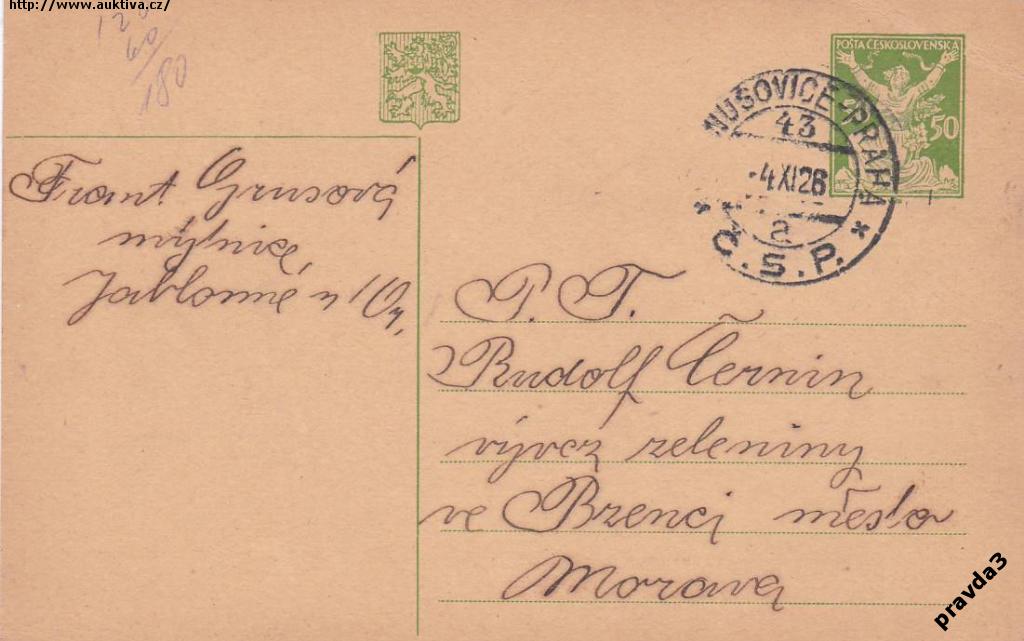 http://www.auktiva.cz/
120
60
180
POŠTA ČESKOSLOVENSKA
50
NUSOVICE-PRAHA
43
-4XI26
a
Č.S.P.
Frant Grusová
mlýnice
Jablonné n/Or,
P. T.
Rudolf Černin
vývoz zeleniny
ve Bzenci město
Morava
pravda3